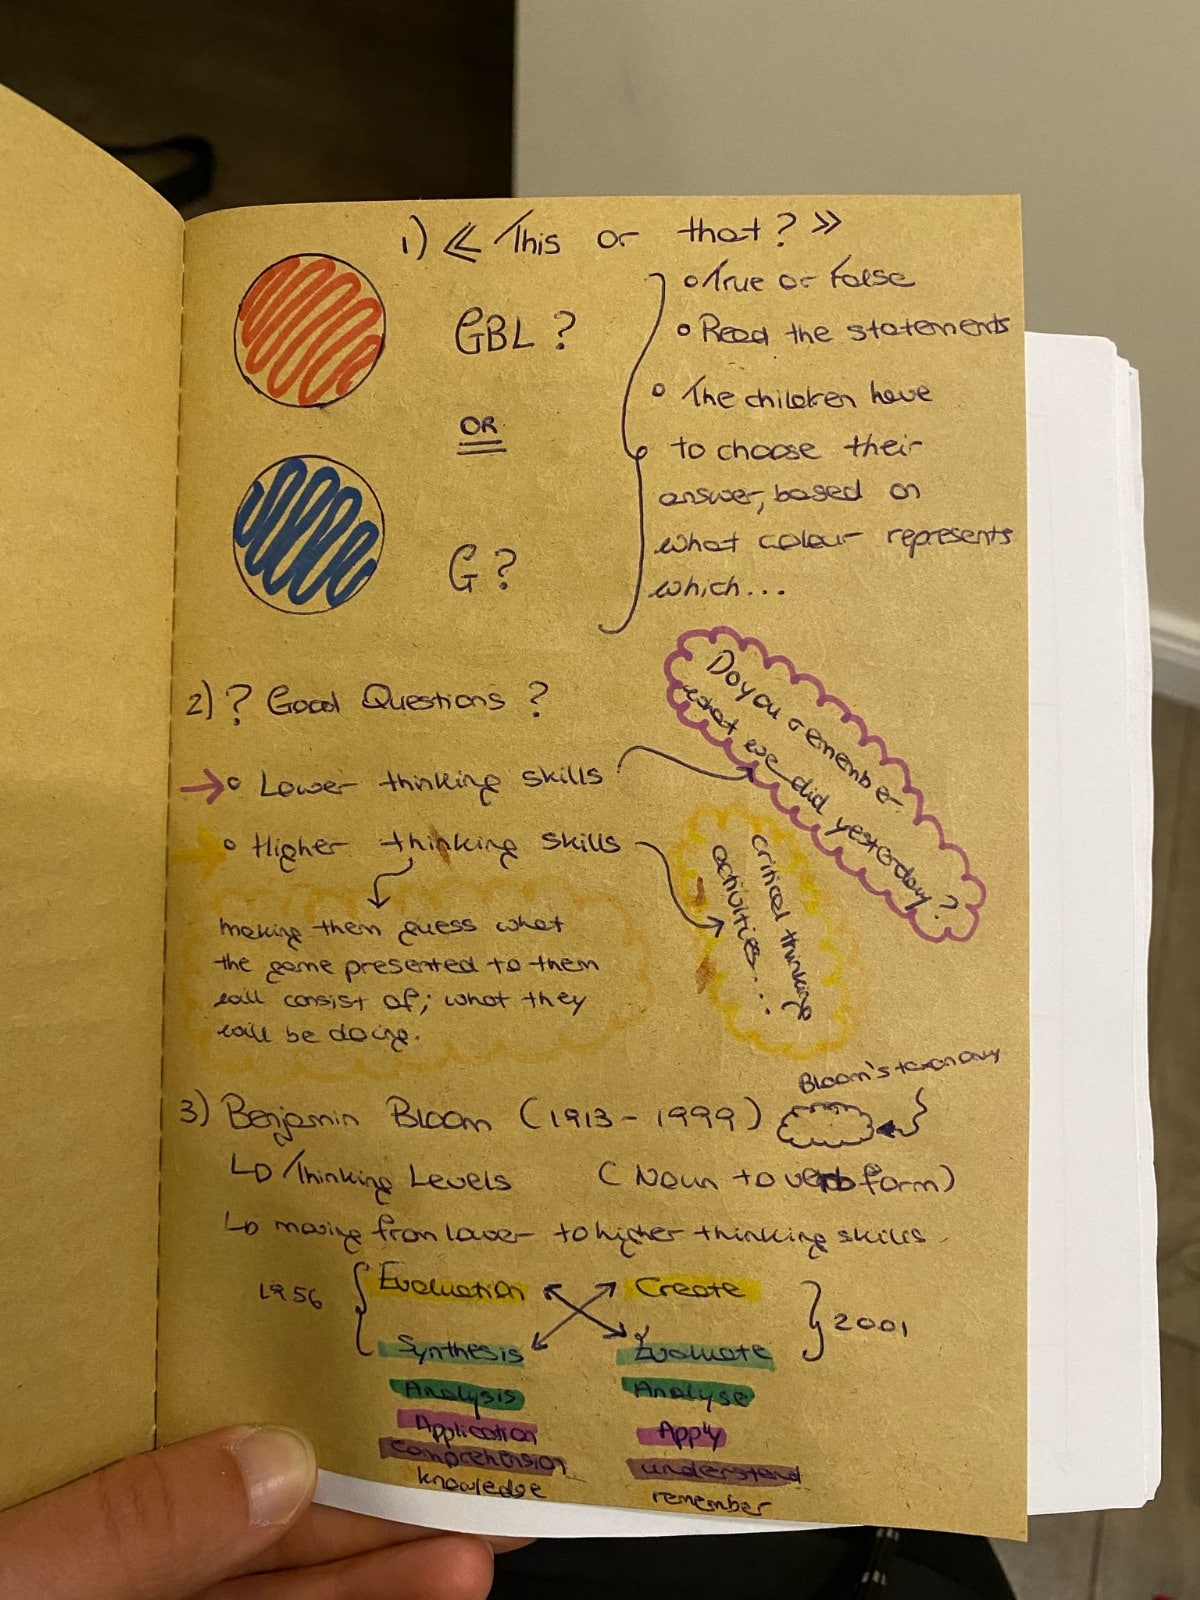 1) « This or that? »
GBL?
OR
G?
• True or False
• Read the statements
• The children have
to choose their
answer, based on
what colour represents
which...
2) ? Good Questions ?
• Lower thinking skills
Do you remember
what we did yesterday?
• Higher thinking skills
critical thinking
activities....
making them guess what
the game presented to them
will consist of; what they
will be doing.
Bloom's taxonomy
3) Benjamin Bloom (1913-1999)
Thinking Levels (Noun to verb form)
moving from lower to higher thinking skills
1956 Evaluation Create 2001
Synthesis Evaluate
Analysis Analyse
Application Apply
comprehension understand
knowledge remember